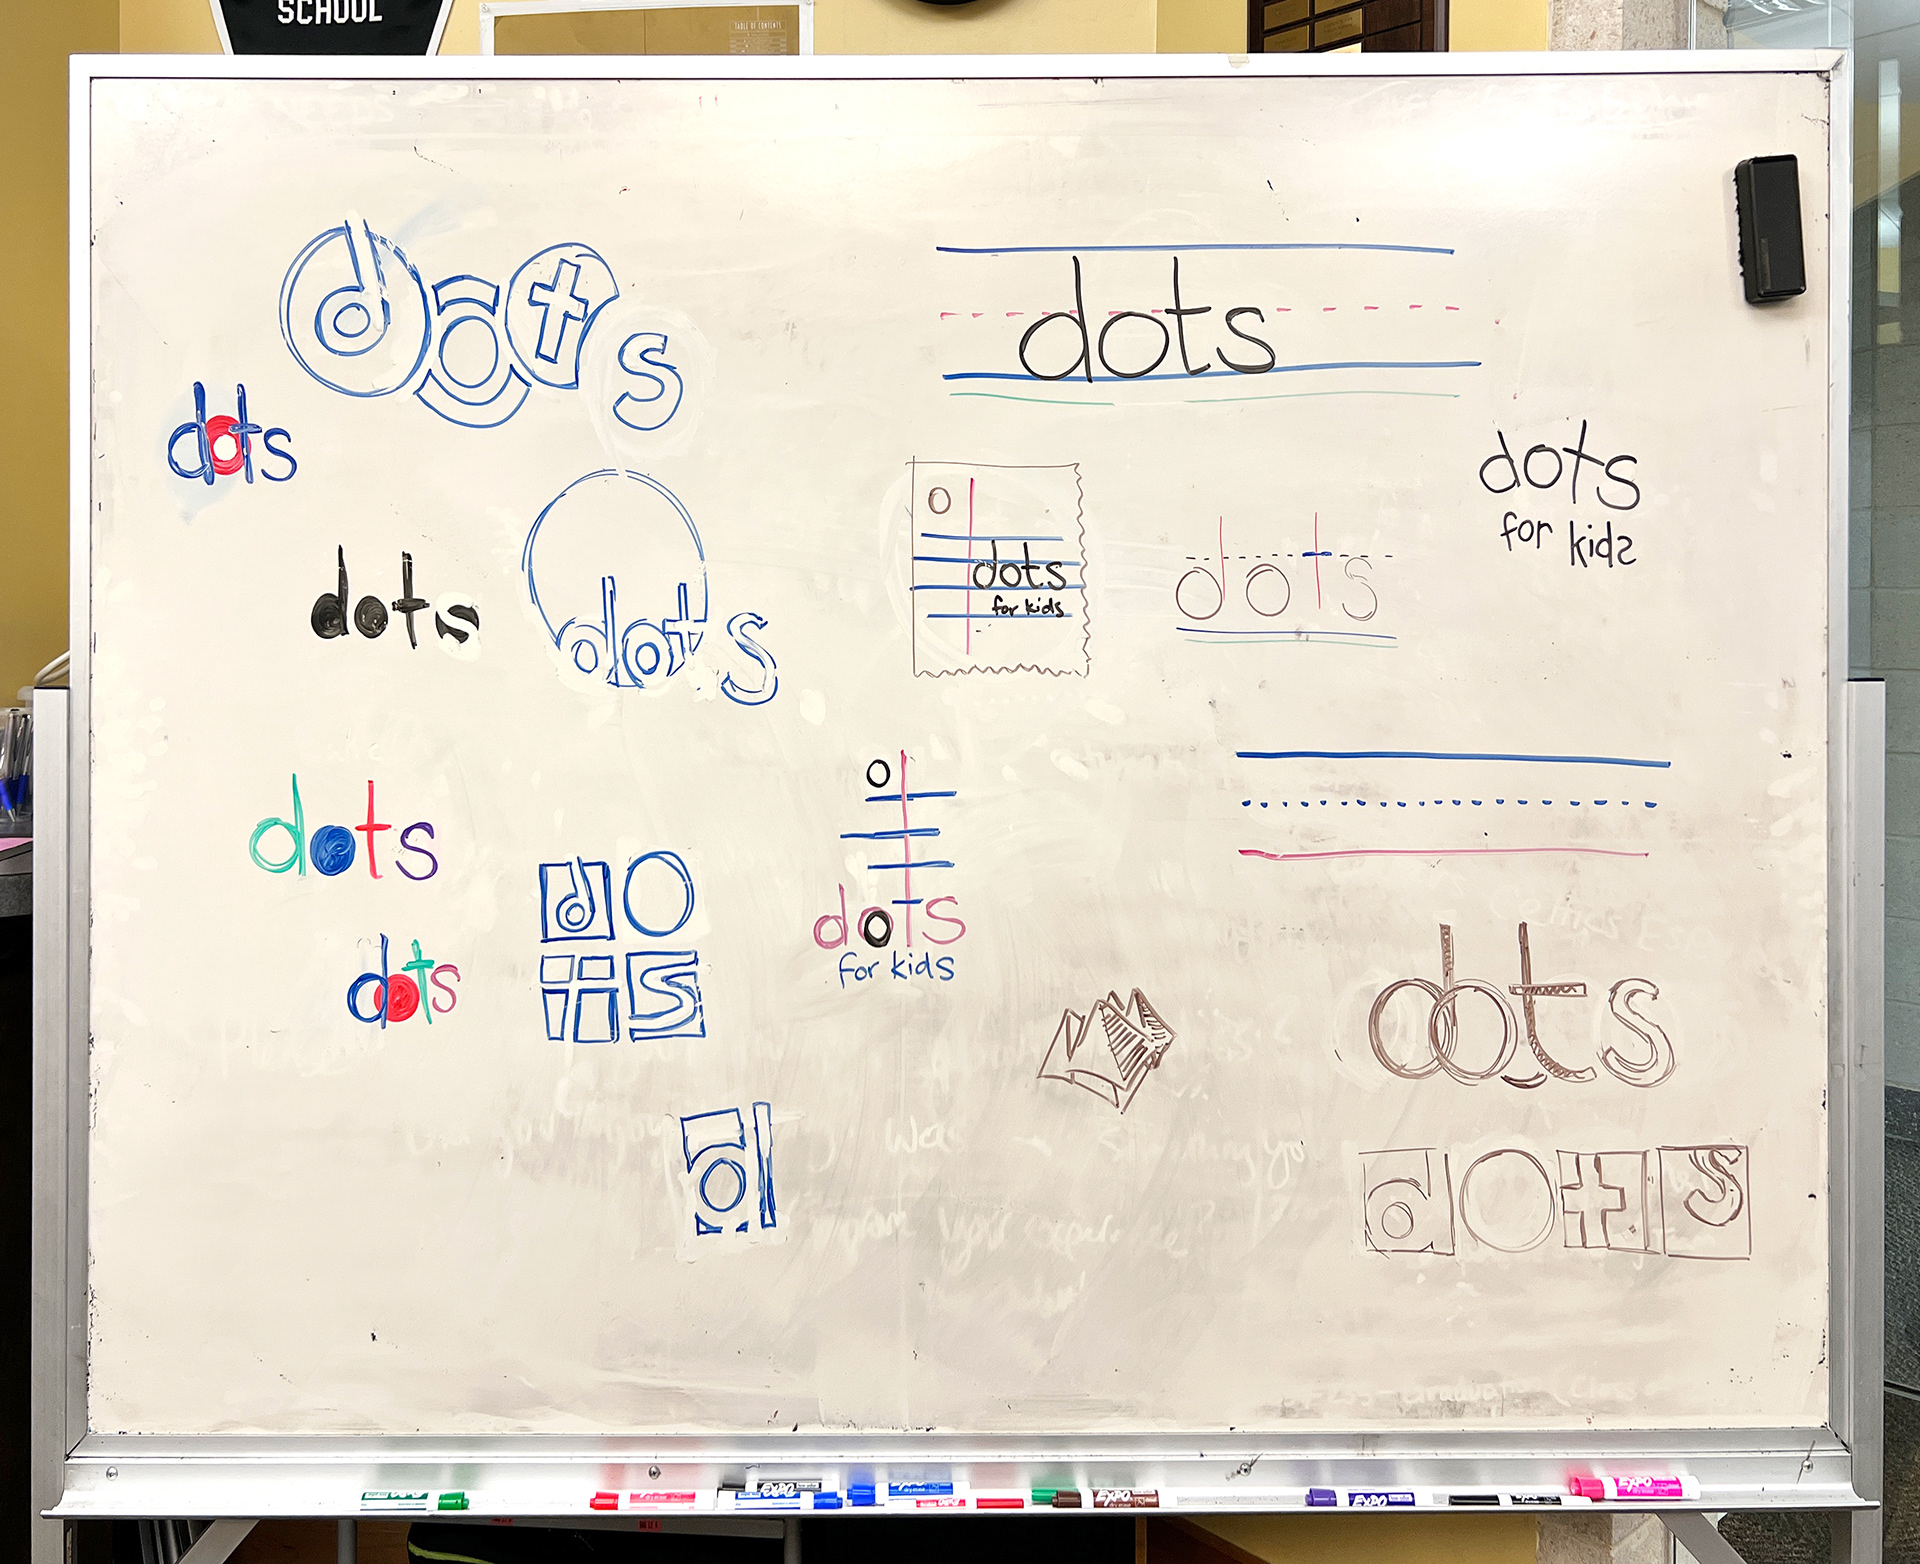 SCHOOL
TABLE OF CONTENTS
dots
dots
dots
dots
for kids
dots
for kids
dots
dots
dots
dots
dots
for kids
do
ts
dots
d
dots
EXPO
EXPO
EXPO
EXPO
EXPO
EXPO